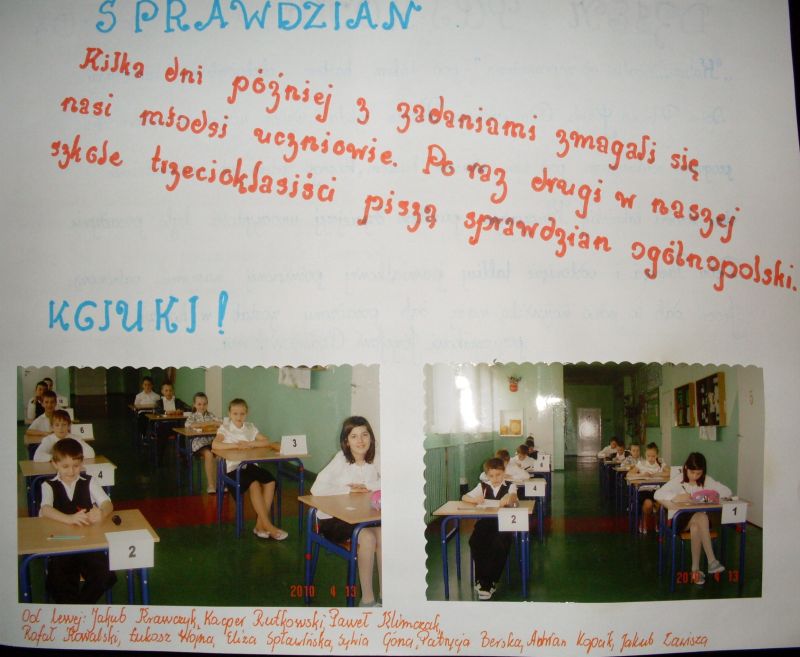 SPRAWDZIAN
Kilka dni później z zadaniami zmagali się
nasi młodsi uczniowie. Po raz drugi w naszej
szkole trzecioklasiści piszą sprawdzian ogólnopolski.
KCIUKI!
6
4
3
2
2010 4 13
5
4
2
1
2010 4 13
Od lewej: Jakub Krawczyk, Kacper Rutkowski, Paweł Klimczak,
Rafał Kowalski, Łukasz Wojna, Eliza Spławińska, Sylwia Gonci, Patrycja Berska, Adrian Kopak, Jakub Zawisza